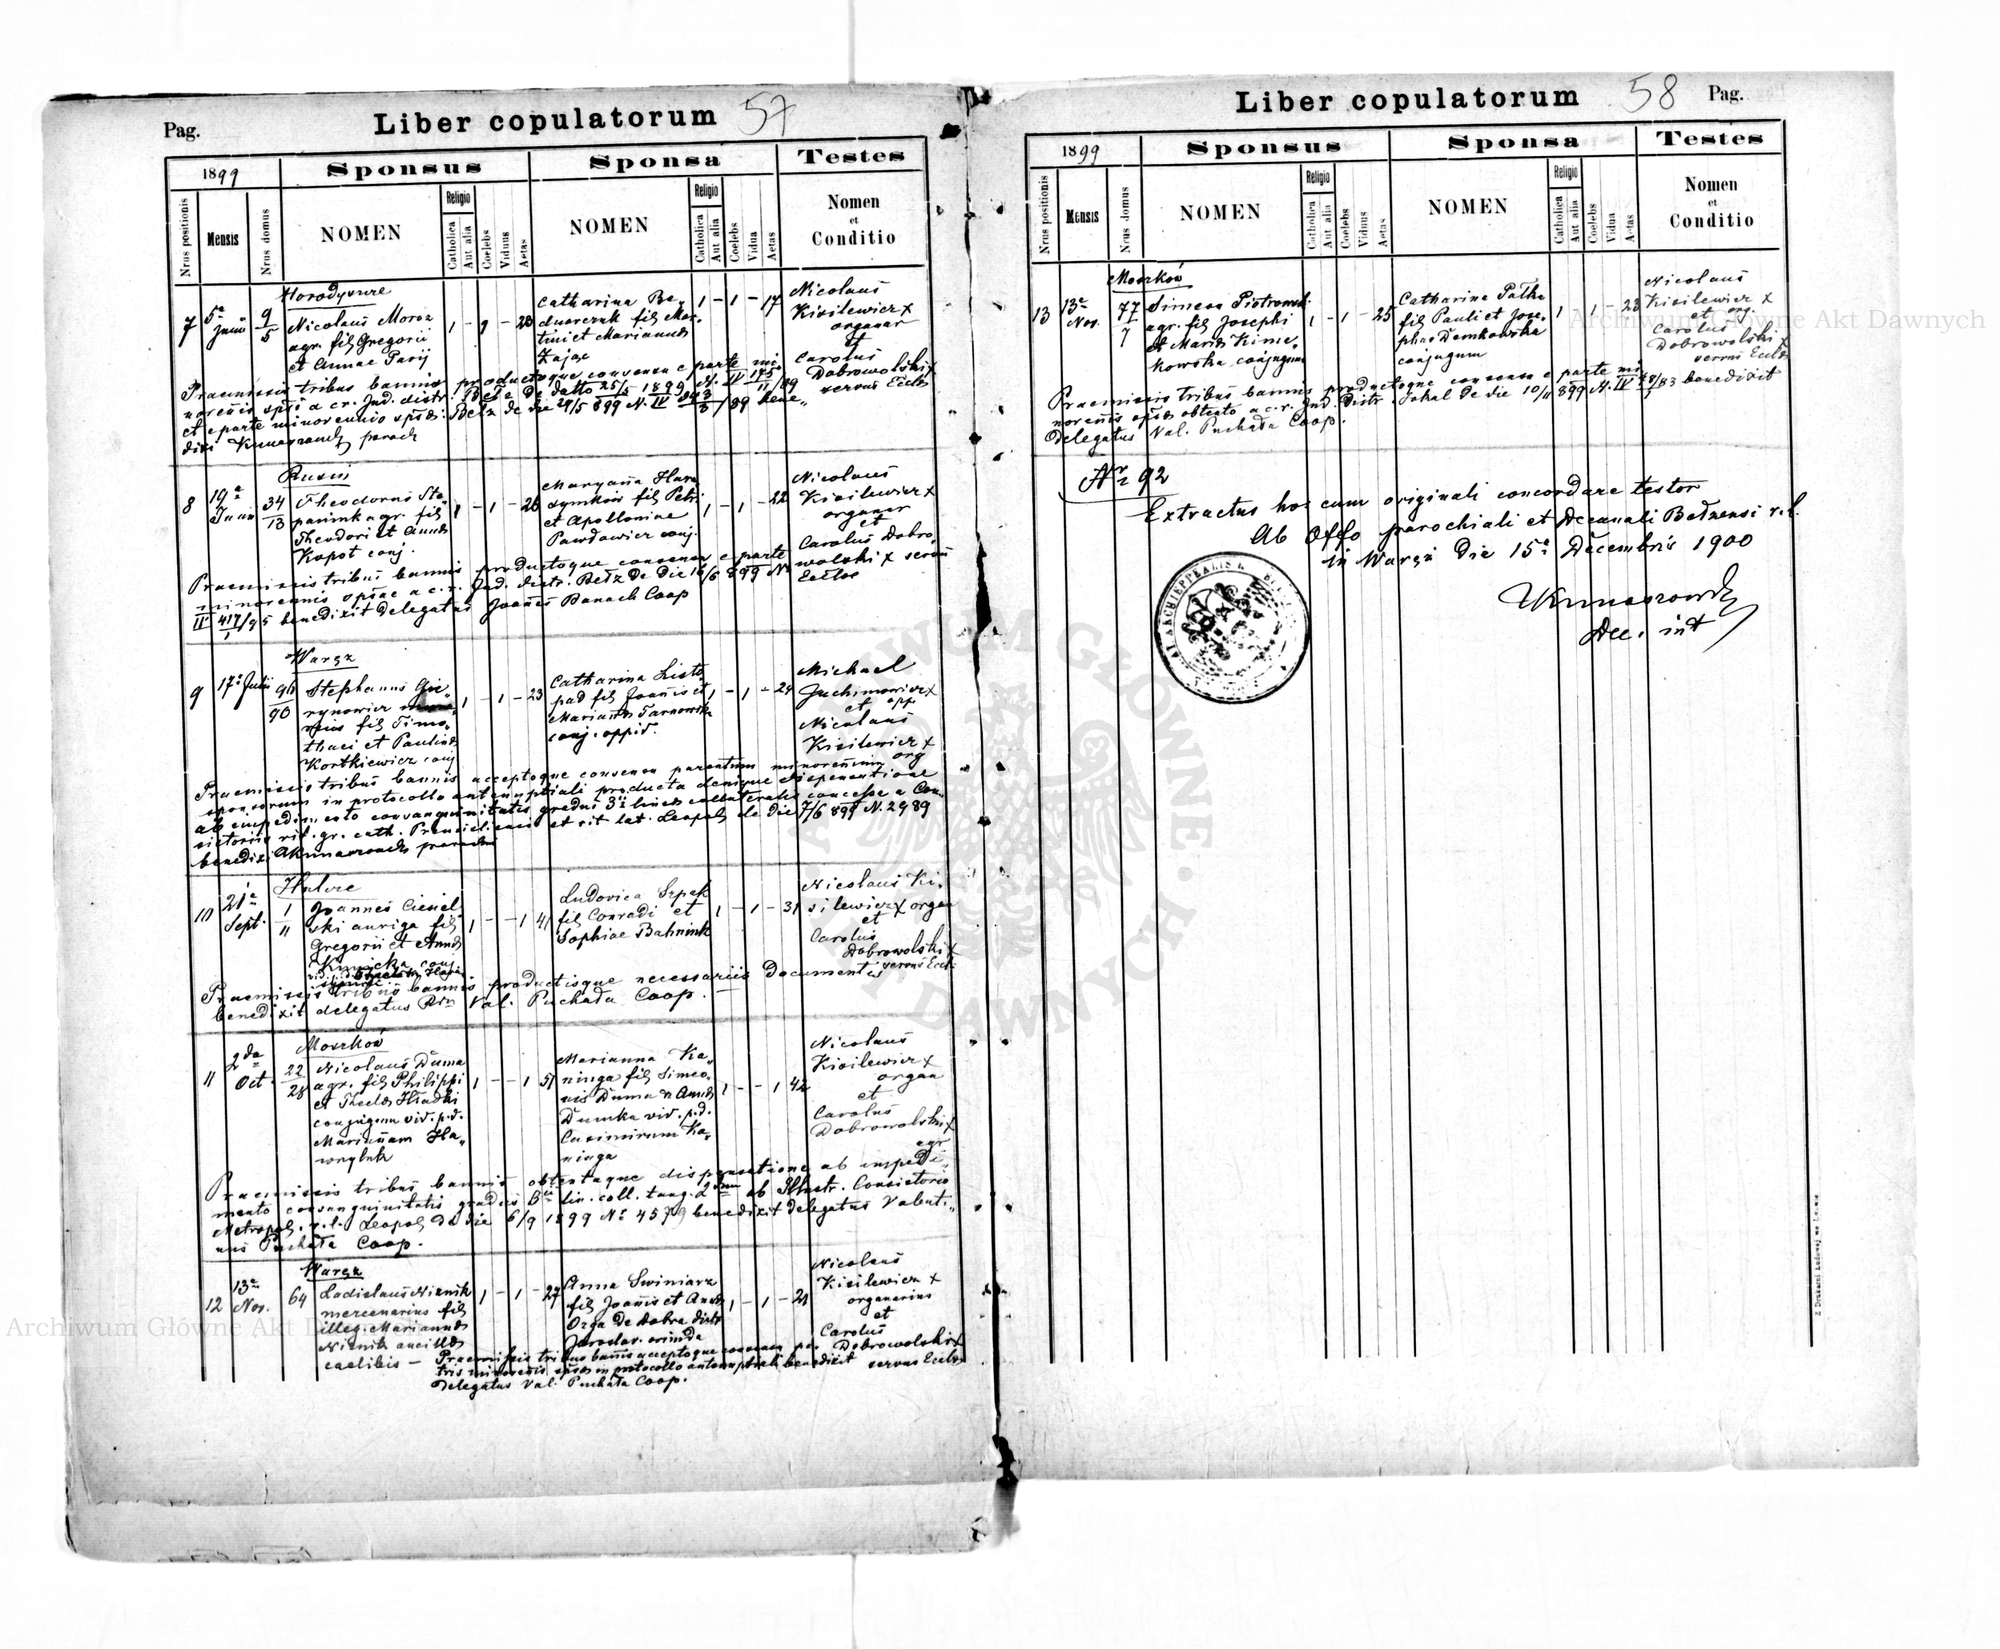 Pag.
Liber copulatorum 57
1899
Sponsus
Sponsa
Testes
Nrus positionis
Mensis
Nrus domus
NOMEN
Religio
Catholica
Aut alia
Coelebs
Viduus
Aetas
NOMEN
Religio
Catholica
Aut alia
Coelebs
Vidua
Aetas
Nomen
et
Conditio
Horodyszcze
7
5a
Junii
9
5
Nicolaus Moroz
agr. fil Gregorii
et Annae
1 - 1 - 23
Catharina
fil Mar-
tini et Mariannae
Zając
1 - 1 - 17
Nicolaus
Kisilewicz x
organar
et
Carolus
Dobrowolski x
servus Eccle
Praemissis tribus bannis productoque consensu e parte mi
norennis a c.r. Jud. distr. Bełz de datto 25/5 1899 N. IV
et e parte minorennis Bełz de die 29/5 899 N. IV bene-
dixi paroch
8
19a
Junii
34
13
Theodorus Ste-
agr. fil
Theodori et Annae
Kopot conj.
1 - 1 - 26
Maryanna
fil Petri
et Apolloniae
conj.
1 - 1 - 22
Nicolaus
Kisilewicz x
organar
et
Carolus Dobro-
wolski x servus
Eccloe
Praemissis tribus bannis productoque consensu e parte
minorennis a c.r. Jud. distr. Bełz de die 16/6 899 N
IV 417/95 benedixit delegatus Joannes Banach Coop
Waręż
9
17a Julii
90
Stephanus
fil Timo-
thaei et Paulinae
Kortkiewicz conj
1 - 1 - 23
Catharina Listo-
pad fil Joannis et
Mariannae Tarnowska
conj. oppid.
1 - 1 - 24
Michael
Jachimowicz x
et opp
Nicolaus
Kisilewicz x
org
Praemissis tribus bannis acceptoque consensu parentum minorennium
sponsorum in protocollo antenuptiali producta denique dispensatione
ab impedimento consanguinitatis gradus 3i lineae collateralis concessa a Con-
sistorio rit. gr. cath. et rit lat. Leopol de die 7/6 899 N. 2989
benedixi
Hulcze
10
21a
Sept.
1
11
Joannes Ciesiel-
ski auriga fil
Gregorii et Annae
conj.
1 - - 1 41
Ludovica Szpak
fil Conradi et
Sophiae
1 - 1 - 31
Nicolaus Ki-
silewicz x organ
et
Carolus
Dobrowolski x
servus Eccle
Praemissis tribus bannis productisque necessariis documentis
benedixit delegatus Val. Puchała Coop.
Moszków
11
2da
Oct.
22
28
Nicolaus Duma
agr. fil Philippi
et Theclae Hładki
conjugum vid. p.d.
Mariannam Ha-
1 - - 1 51
Marianna Ka-
ninga fil Simeo-
nis Duma et Annae
Dumka vid. p.d.
Casimirum Ka-
ninga
1 - - 1 42
Nicolaus
Kisilewicz x
organ
et
Carolus
Dobrowolski x
Praemissis tribus bannis obtentaque dispensatione ab impedi-
mento consanguinitatis gradus lin. coll. tang. 2dum ab Illustr. Consistorio
Metropol. r.l. Leopol de die 6/9 1899 No 4579 benedixit delegatus Valenti-
nus Puchała Coop.
Waręż
12
13a
Nov.
64
Ladislaus Niznik
mercenarius fil
illeg. Mariannae
Niznik ancillae
caelibis
1 - 1 - 27
Anna Swiniarz
fil Joannis et Annae
Orga de Dobra distr
Jaroslav. oriunda
1 - 1 - 21
Nicolaus
Kisilewicz x
organarius
et
Carolus
Dobrowolski x
servus Eccle
Praemissis tribus bannis acceptoque consensu pa
tris minorennis in protocollo antenuptiali benedixit
Delegatus Val. Puchała Coop.
Liber copulatorum 58
Pag.
1899
Sponsus
Sponsa
Testes
Nrus positionis
Mensis
Nrus domus
NOMEN
Religio
Catholica
Aut alia
Coelebs
Viduus
Aetas
NOMEN
Religio
Catholica
Aut alia
Coelebs
Vidua
Aetas
Nomen
et
Conditio
Moszków
13
13a
Nov.
77
7
Simeon
agr. fil Josephi
et Mariae
conjugum
1 - 1 - 25
Catharina Pałka
fil Pauli et Jose-
phae Demkowska
conjugum
1 1 - 23
Nicolaus
Kisilewicz x
et org.
Carolus
Dobrowolski x
servus Eccle
Praemissis tribus bannis productoque consensu e parte mi
norennis obtento a c.r. Jud. Distr. Sokal de die 10/11 899 N. IV benedixit
Delegatus Val. Puchała Coop.
Nr 92
Extractus hos cum originali concordare testor
Ab Offo parochiali et Decanali Bełzensi r.l.
in Waręż die 15a Decembris 1900
Dec. int
Z Drukarni Ludowej we Lwowie
Archiwum Główne Akt Dawnych
Archiwum Główne Akt Dawnych
ARCHIWUM GŁÓWNE AKT DAWNYCH